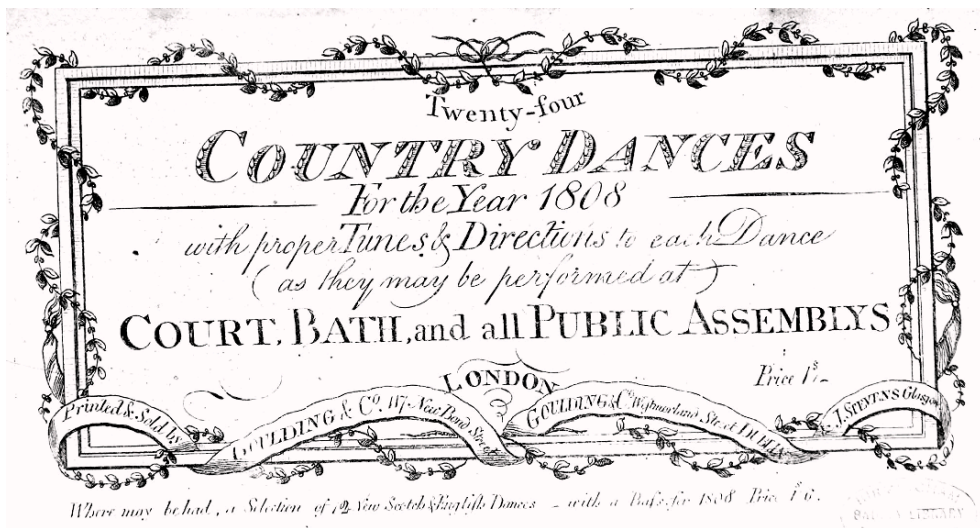 Twenty-four
COUNTRY DANCES
For the Year 1808
with proper Tunes & Directions to each Dance
(as they may be performed at)
COURT, BATH, and all PUBLIC ASSEMBLYS
Price 1s/-
LONDON
Printed & Sold by
GOULDING & Co. 117 New Bond Street
GOULDING & Co. Westmorland Street DUBLIN
& J. STEVENS Glasgow
Where may be had, a Selection of 12 New Scotch & English Dances - with a Bass for 1808 Price 1s 6.